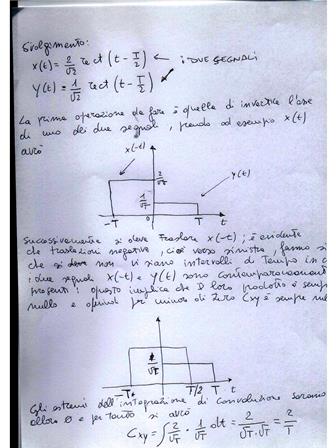 Svolgimento:
x(t) = 2/√T rect (t - T/2) ← i DUE SEGNALI
y(t) = 1/√T rect (t - T/2)
La prima operazione da fare è quella di invertire l'asse
di uno dei due segnali, prendo ad esempio x(t)
avrò
x(-t)
2/√T
y(t)
1/√T
-T 0 T t
Successivamente si deve traslare x(-t); è evidente
che traslazioni negative, cioè verso sinistra, fanno sì
che si deve non vi siano intervalli di tempo in c
i due segnali x(-t) e y(t) sono contemporaneament
presenti: questo implica che il loro prodotto è semp
nullo e quindi per minori di zero Cxy è sempre nul
1/√T
-T T/2 T t
Gli estremi dell'integrazione di convoluzione saranno
allora 0 e per tanto si avrà
Cxy = ∫ 2/√T · 1/√T dt = 2/√T·√T = 2/T